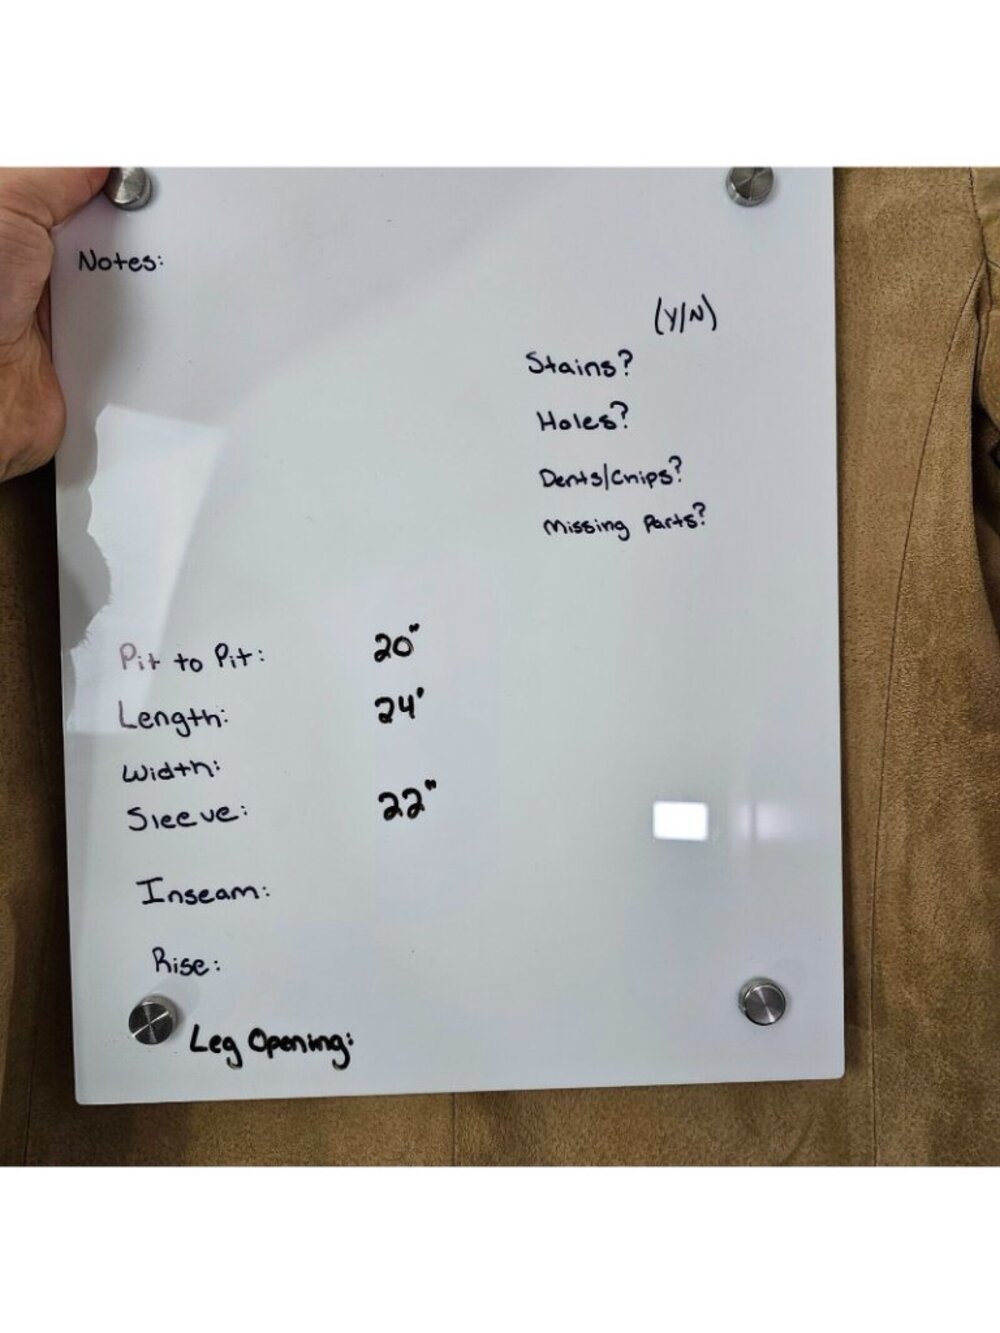 Notes:
(Y/N)
Stains?
Holes?
Dents/Chips?
Missing Parts?
Pit to Pit: 20"
Length: 24'
Width:
Sleeve: 22"
Inseam:
Rise:
Leg Opening: